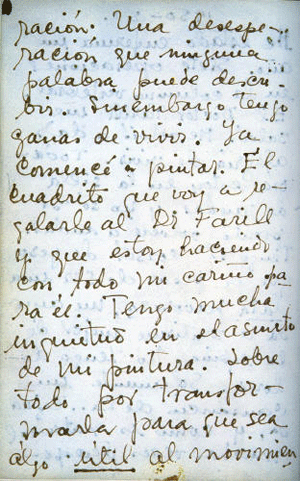 ración. Una desespe-
ración que ninguna
palabra puede descri-
bir. Sinembargo tengo
ganas de vivir. Ya
comencé a pintar. El
cuadrito que voy a re-
galarle al Dr Farill
y que estoy haciendo
con todo mi cariño pa
ra él. Tengo mucha
inquietud en el asunto
de mi pintura. Sobre
todo por transfor-
marla para que sea
algo útil al movimien